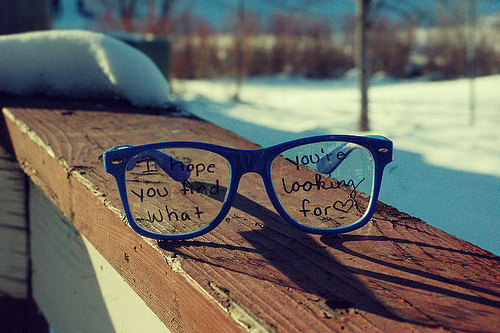 I hope
you find
what
you're
looking
for♡